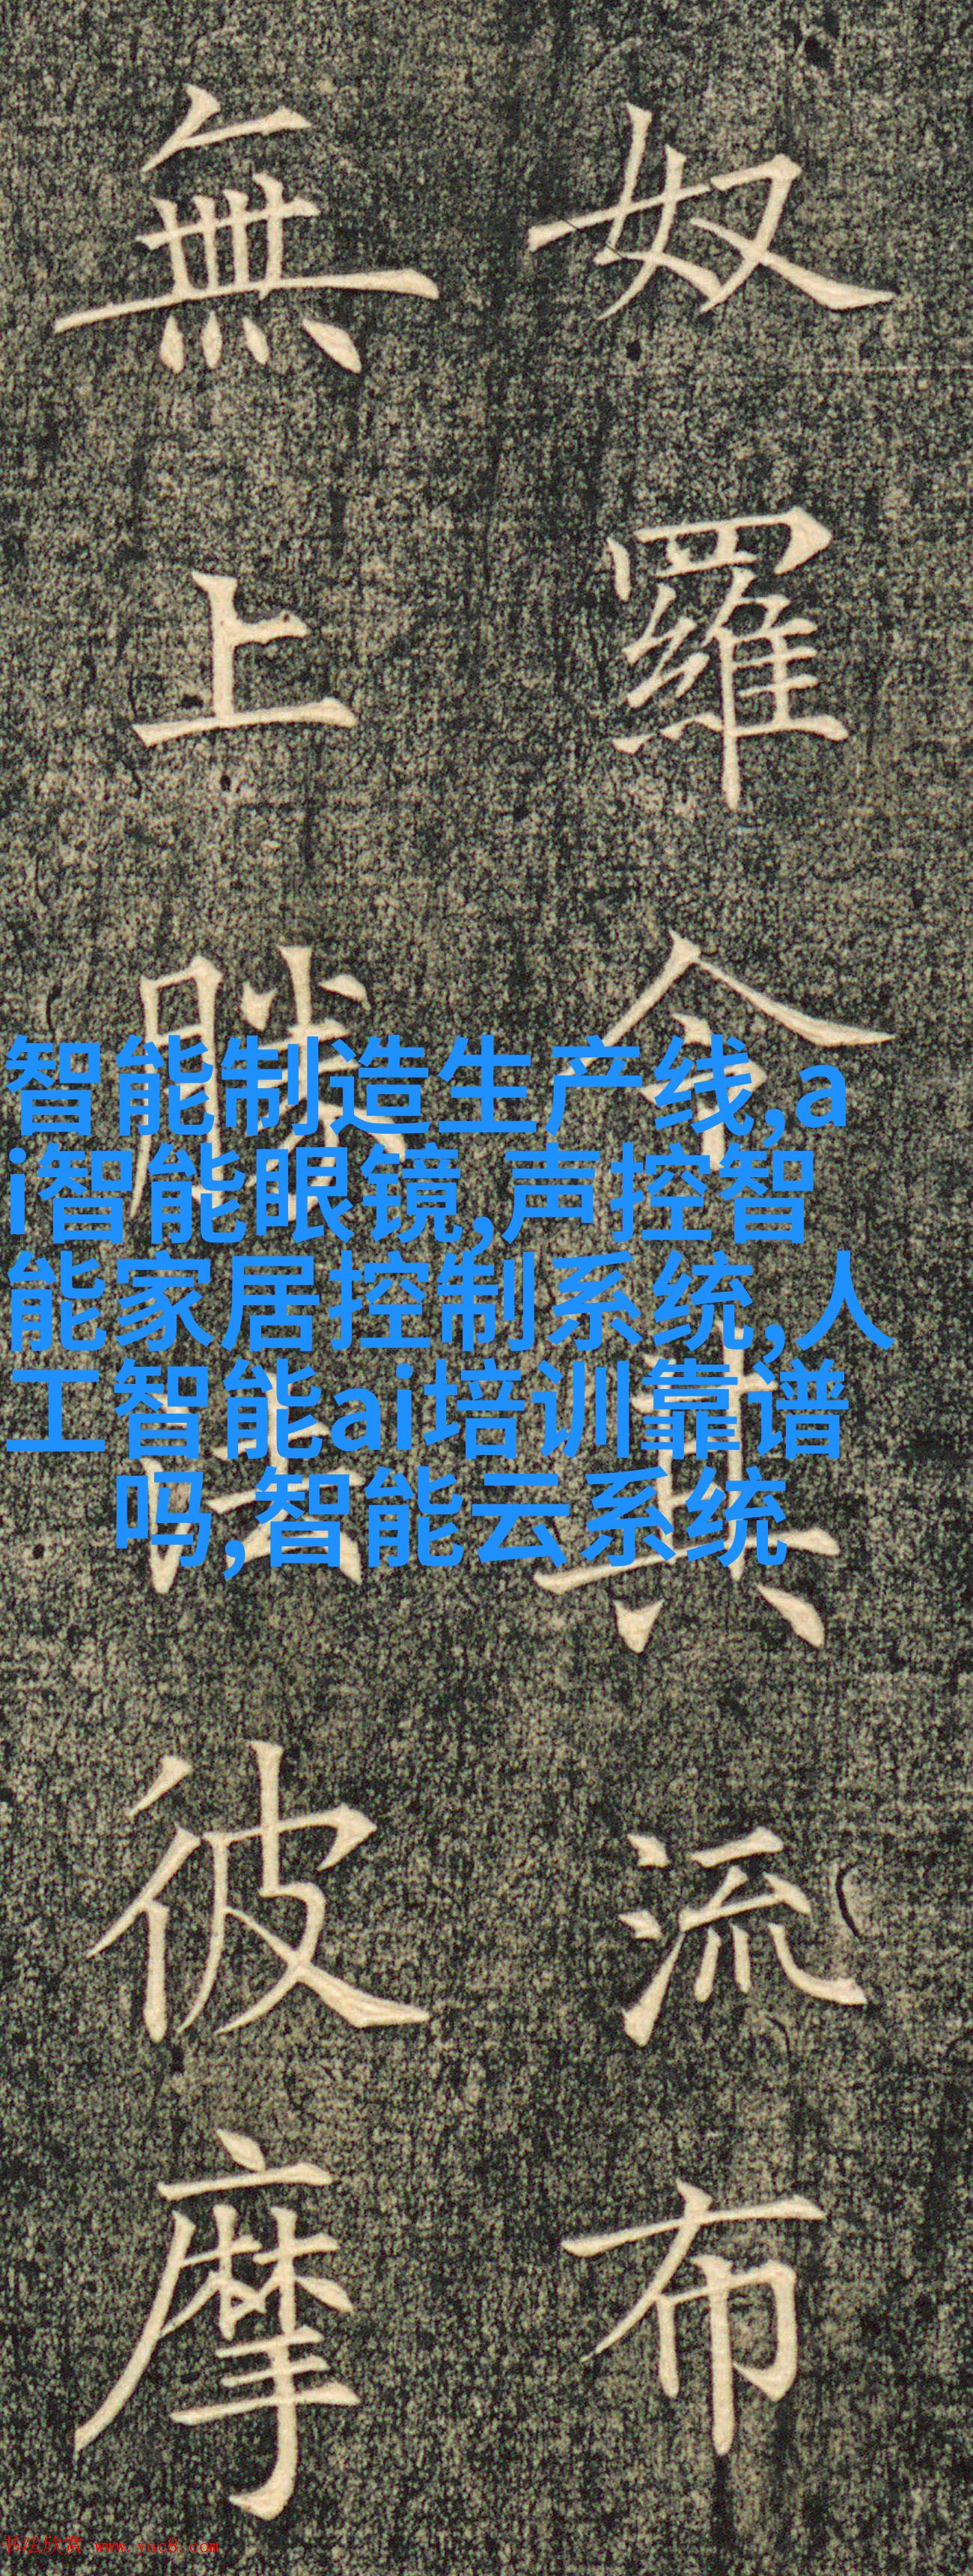 奴羅令其流布
無上勝法彼摩
智能制造生产线,a
i智能眼镜,声控智
能家居控制系统,人
工智能ai培训靠谱
吗,智能云系统
书法欣赏 www.yac8.com